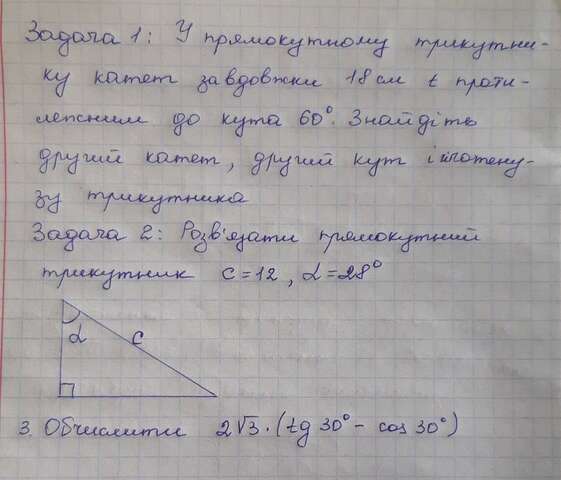 Задача 1: У прямокутному трикутни-
ку катет завдовжки 18 см є проти-
лежним до кута 60°. Знайдіть
другий катет, другий кут і гіпотену-
зу трикутника
Задача 2: Розв'язати прямокутний
трикутник c = 12, α = 28°
α c
3. Обчислити 2√3 · (tg 30° - cos 30°)